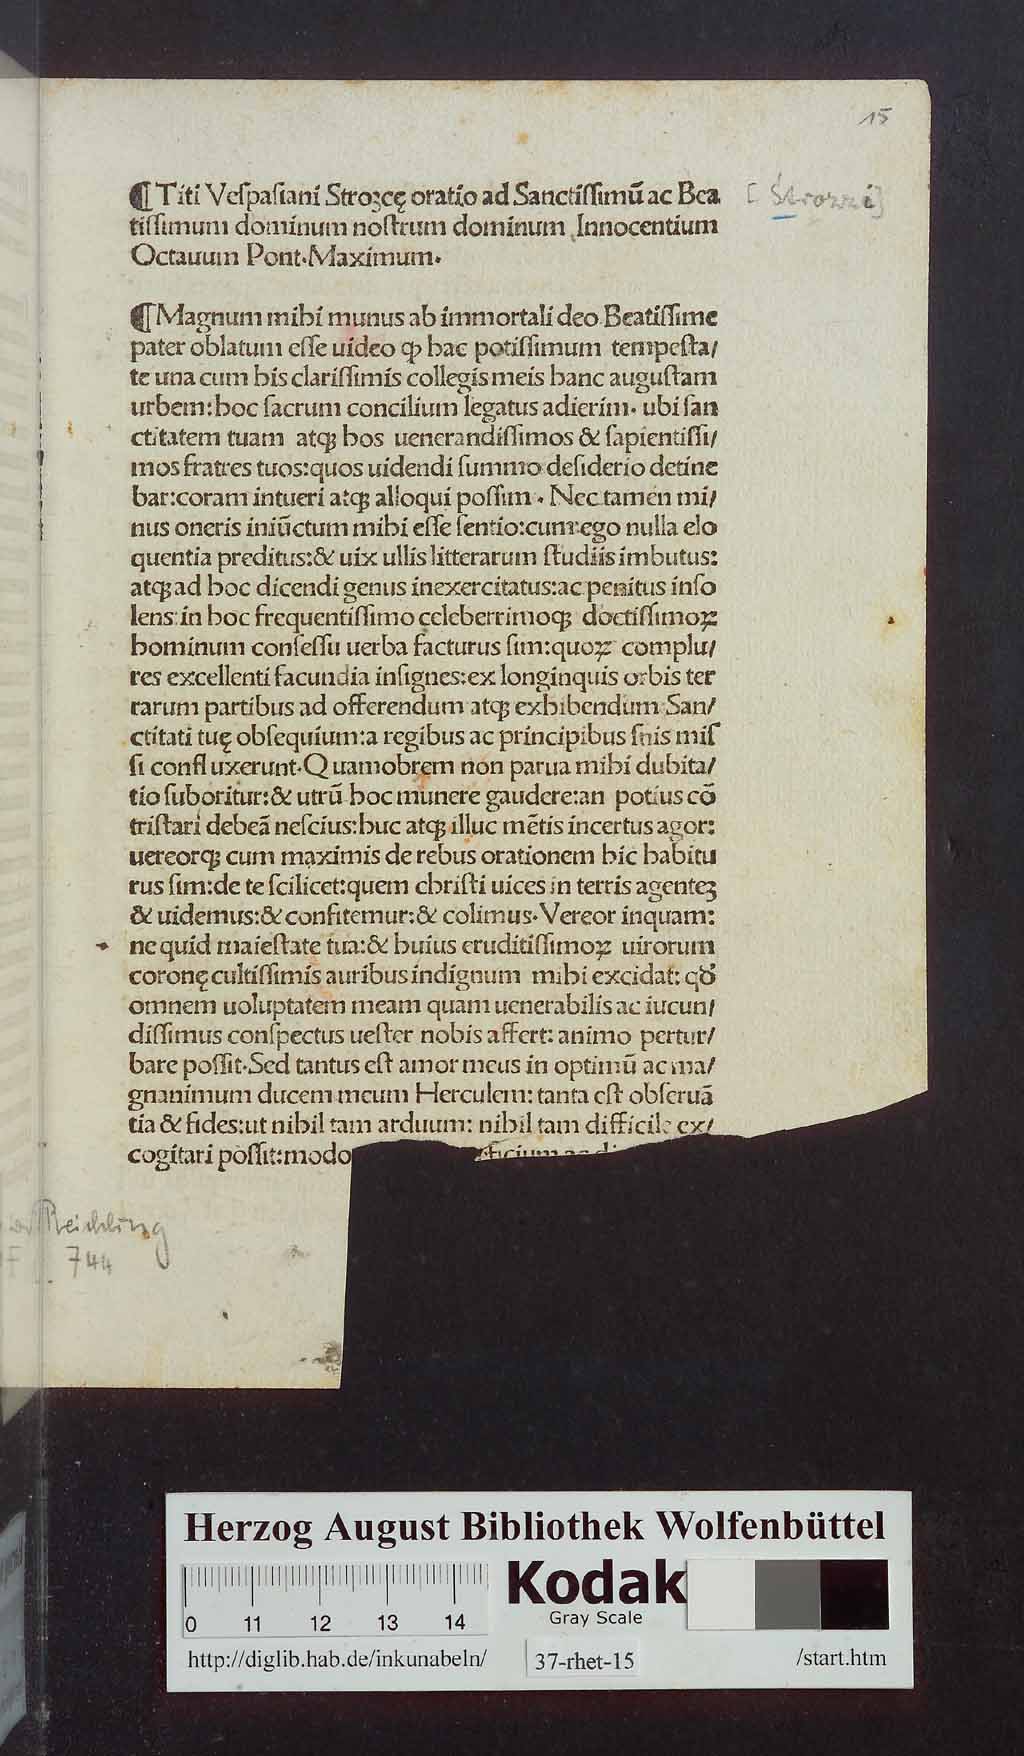 15
¶ Titi Veſpaſiani Strozcę oratio ad Sanctiſſimū ac Bea
[Strozzi]
tiſſimum dominum noſtrum dominum Innocentium
Octauum Pont. Maximum.
¶ Magnum mihi munus ab immortali deo Beatiſſime
pater oblatum eſſe uideo ꝙ hac potiſſimum tempeſta/
te una cum his clariſſimis collegis meis hanc auguſtam
urbem: hoc ſacrum concilium legatus adierim. ubi ſan
ctitatem tuam atqꝫ hos uenerandiſſimos & ſapientiſſi/
mos fratres tuos: quos uidendi ſummo deſiderio detine
bar: coram intueri atqꝫ alloqui poſſim. Nec tamen mi/
nus oneris iniūctum mihi eſſe ſentio: cum ego nulla elo
quentia preditus: & uix ullis litterarum ſtudiis imbutus:
atqꝫ ad hoc dicendi genus inexercitatus: ac penitus inſo
lens: in hoc frequentiſſimo celeberrimoqꝫ doctiſſimoꝝ
hominum conſeſſu uerba facturus ſim: quoꝝ complu/
res excellenti facundia inſignes: ex longinquis orbis ter
rarum partibus ad offerendum atqꝫ exhibendum San/
ctitati tuę obſequium: a regibus ac principibus ſuis miſ
ſi confluxerunt. Quamobrem non parua mihi dubita/
tio ſuboritur: & utrū hoc munere gaudere: an potius cō
triſtari debeā neſcius: huc atqꝫ illuc mētis incertus agor:
uereorqꝫ cum maximis de rebus orationem hic habitu
rus ſim: de te ſcilicet: quem chriſti uices in terris agenteꝫ
& uidemus: & confitemur: & colimus. Vereor inquam:
ne quid maieſtate tua: & huius eruditiſſimoꝝ uirorum
coronę cultiſſimis auribus indignum mihi excidat: qđ
omnem uoluptatem meam quam uenerabilis ac iucun/
diſſimus conſpectus ueſter nobis affert: animo pertur/
bare poſſit. Sed tantus eſt amor meus in optimū ac ma/
gnanimum ducem meum Herculem: tanta eſt obſeruā
tia & fides: ut nihil tam arduum: nihil tam difficile ex/
cogitari poſſit: modo
Reichling
744
Herzog August Bibliothek Wolfenbüttel
Kodak
Gray Scale
0 11 12 13 14
http://diglib.hab.de/inkunabeln/ 37-rhet-15 /start.htm